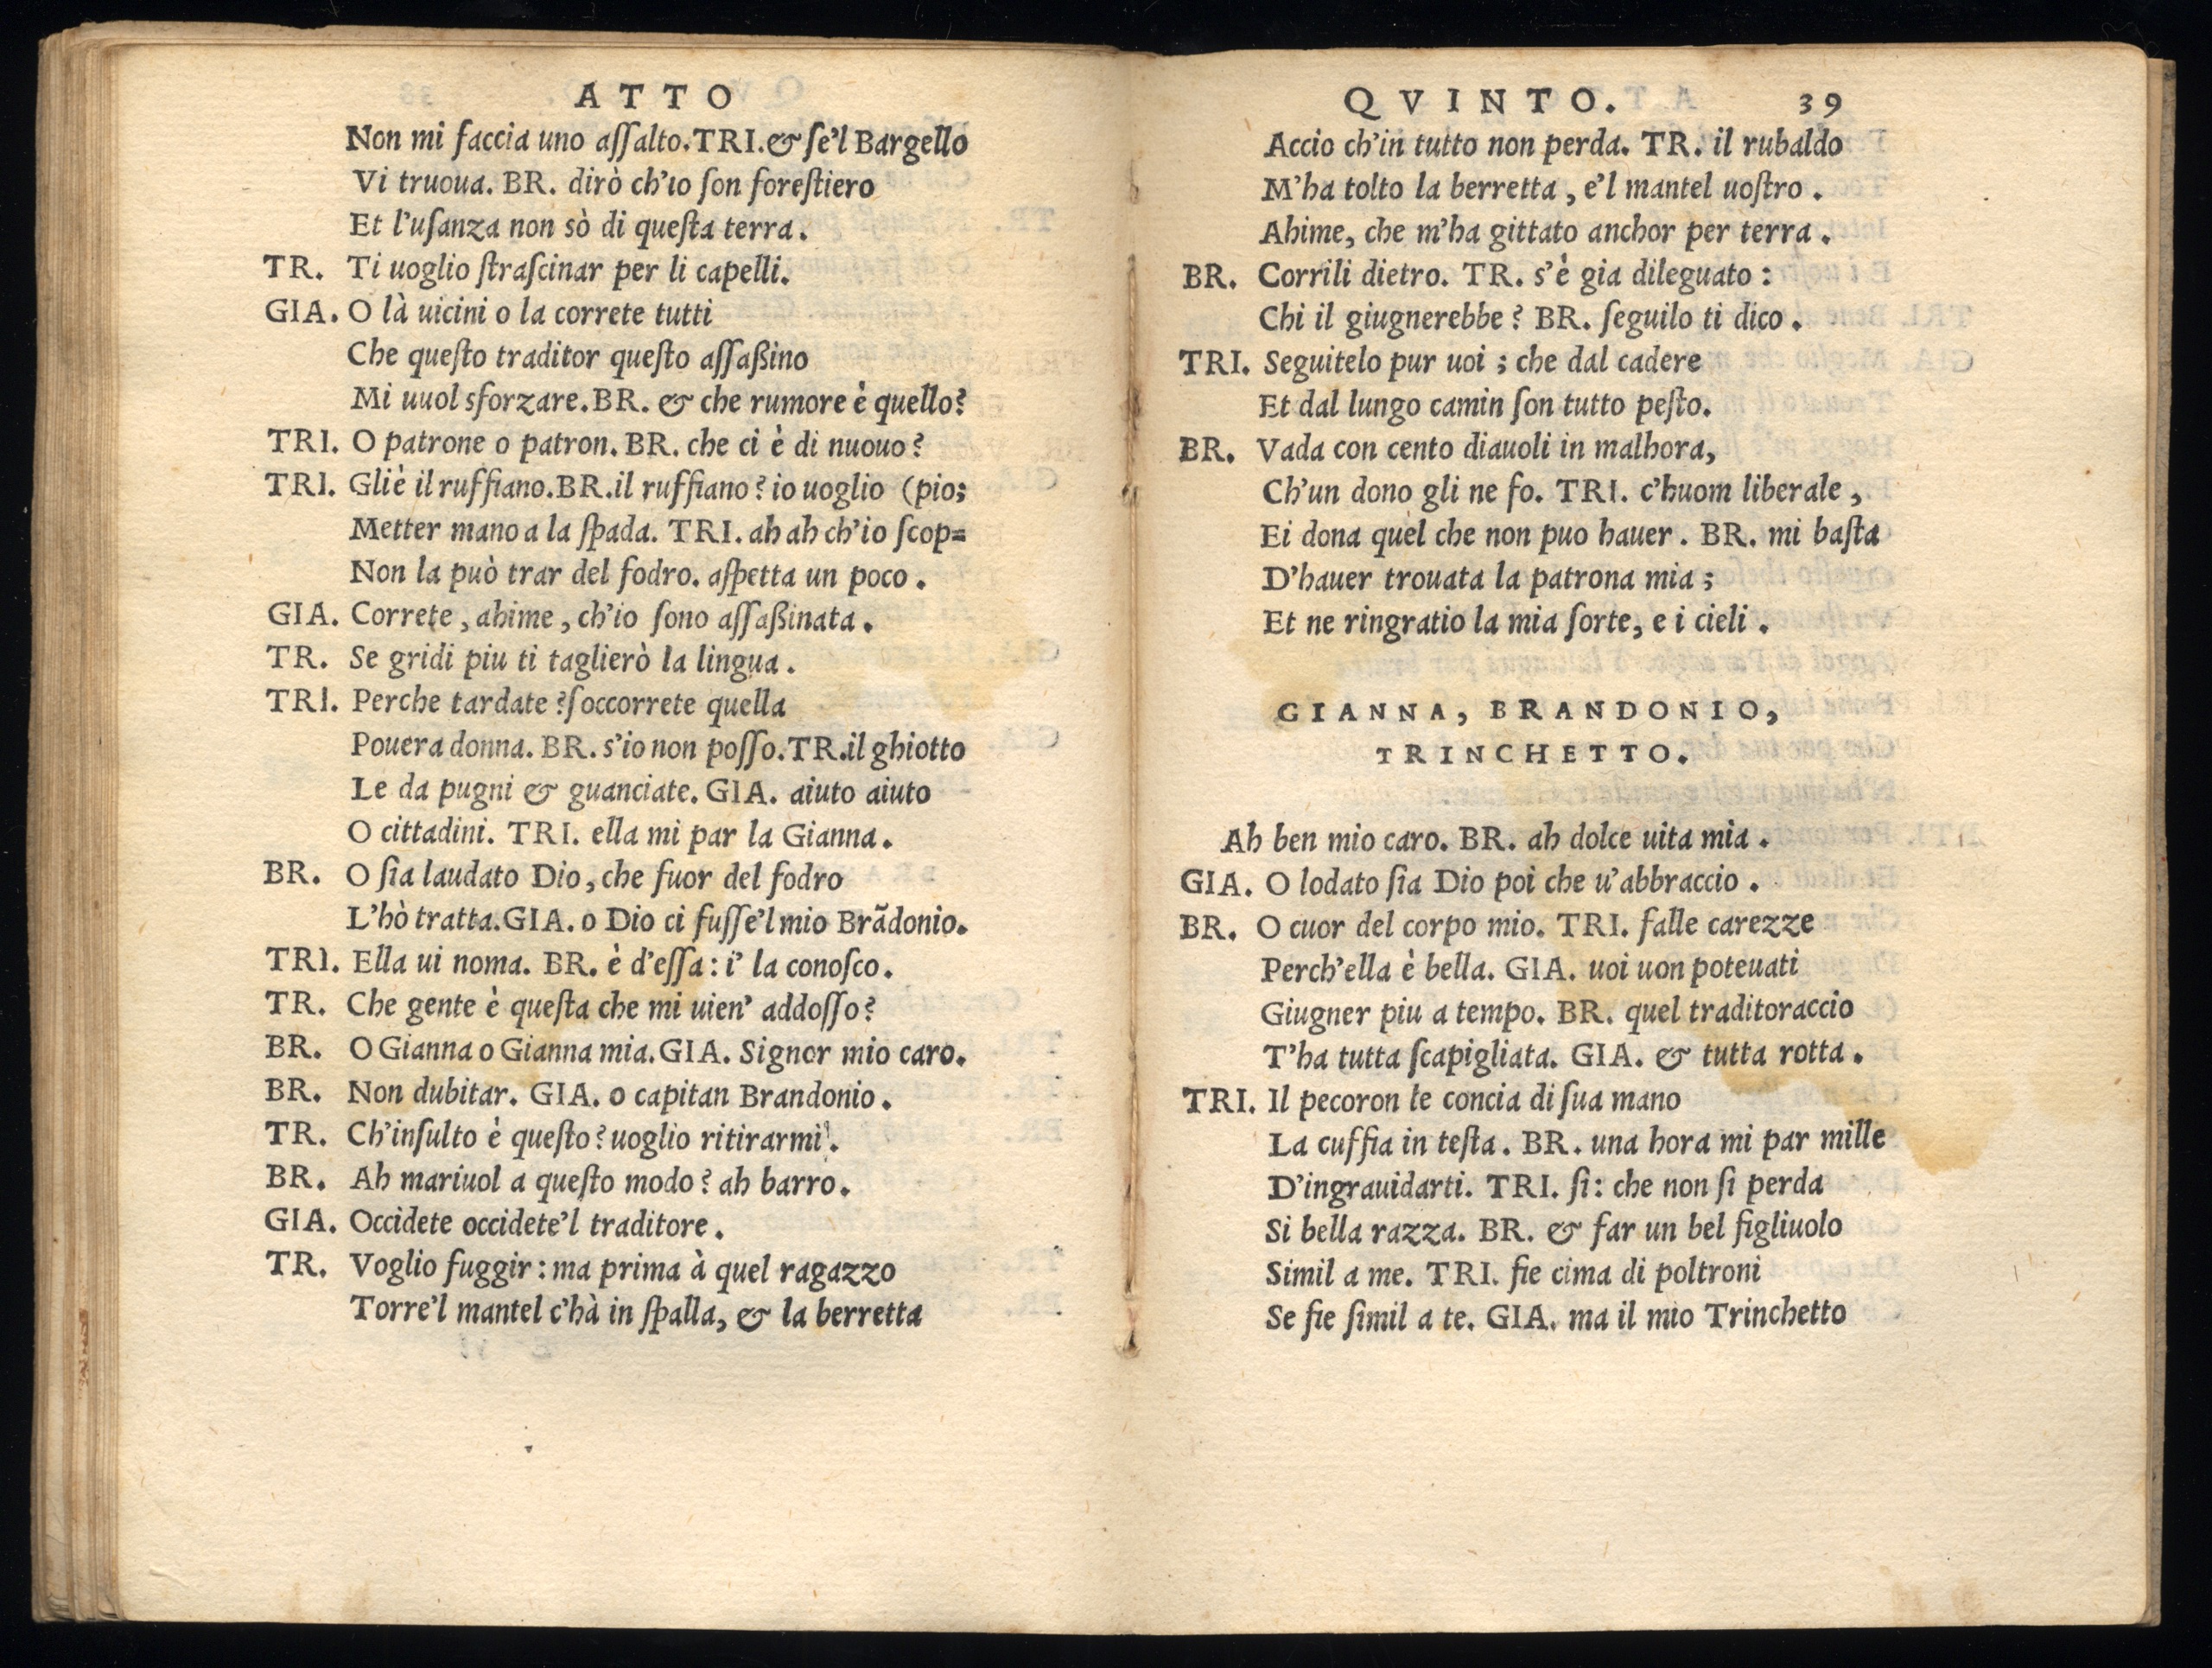 ATTO
Non mi faccia uno aſſalto. TRI. & ſe'l Bargello
Vi truoua. BR. dirò ch'io ſon foreſtiero
Et l'uſanza non sò di queſta terra.
TR. Ti uoglio ſtraſcinar per li capelli.
GIA. O là uicini o la correte tutti
Che queſto traditor queſto aſſaßino
Mi uuol sforzare. BR. & che rumore è quello?
TRI. O patrone o patron. BR. che ci è di nuouo?
TRI. Gliè il ruffiano. BR. il ruffiano? io uoglio (pio;
Metter mano a la ſpada. TRI. ah ah ch'io ſcop=
Non la può trar del fodro. aſpetta un poco.
GIA. Correte, ahime, ch'io ſono aſſaßinata.
TR. Se gridi piu ti taglierò la lingua.
TRI. Perche tardate? ſoccorrete quella
Pouera donna. BR. s'io non poſſo. TR. il ghiotto
Le da pugni & guanciate. GIA. aiuto aiuto
O cittadini. TRI. ella mi par la Gianna.
BR. O ſia laudato Dio, che fuor del fodro
L'hò tratta. GIA. o Dio ci fuſſe'l mio Brãdonio.
TRI. Ella ui noma. BR. è d'eſſa: i' la conoſco.
TR. Che gente è queſta che mi uien' addoſſo?
BR. O Gianna o Gianna mia. GIA. Signor mio caro.
BR. Non dubitar. GIA. o capitan Brandonio.
TR. Ch'inſulto è queſto? uoglio ritirarmi.
BR. Ah mariuol a queſto modo? ah barro.
GIA. Occidete occidete'l traditore.
TR. Voglio fuggir: ma prima à quel ragazzo
Torre'l mantel c'hà in ſpalla, & la berretta
QVINTO. 39
Accio ch'in tutto non perda. TR. il rubaldo
M'ha tolto la berretta, e'l mantel uoſtro.
Ahime, che m'ha gittato anchor per terra.
BR. Corrili dietro. TR. s'è gia dileguato:
Chi il giugnerebbe? BR. ſeguilo ti dico.
TRI. Seguitelo pur uoi; che dal cadere
Et dal lungo camin ſon tutto peſto.
BR. Vada con cento diauoli in malhora,
Ch'un dono gli ne fo. TRI. c'huom liberale,
Ei dona quel che non puo hauer. BR. mi baſta
D'hauer trouata la patrona mia;
Et ne ringratio la mia ſorte, e i cieli.
GIANNA, BRANDONIO,
TRINCHETTO.
Ah ben mio caro. BR. ah dolce uita mia.
GIA. O lodato ſia Dio poi che u'abbraccio.
BR. O cuor del corpo mio. TRI. falle carezze
Perch'ella è bella. GIA. uoi uon poteuati
Giugner piu a tempo. BR. quel traditoraccio
T'ha tutta ſcapigliata. GIA. & tutta rotta.
TRI. Il pecoron le concia di ſua mano
La cuffia in teſta. BR. una hora mi par mille
D'ingrauidarti. TRI. ſi: che non ſi perda
Si bella razza. BR. & far un bel figliuolo
Simil a me. TRI. fie cima di poltroni
Se fie ſimil a te. GIA. ma il mio Trinchetto